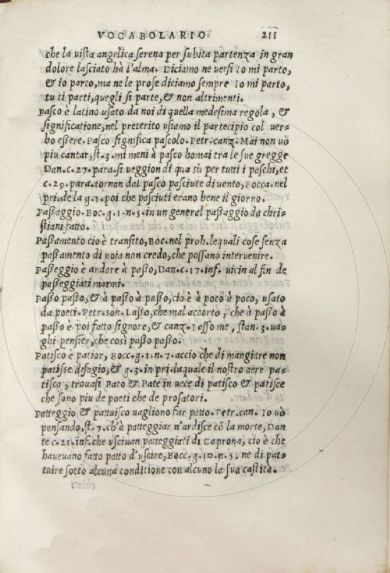 VOCABOLARIO. 211
che la vista angelica serena per subita partenza in gran
dolore lasciato hà l'alma. Diciamo ne versi Io mi parto,
& io parto, ma ne le prose diciamo sempre Io mi parto,
tu ti parti, quegli si parte, & non altrimenti.
Pasco è latino usato da noi di quella medesima regola, &
significatione, nel preterito usiamo il partecipio col ver=
bo essere. Pasco significa pascolo. Petr. canz. Mai non uò
piu cantar, st. 3. mi meni à pasco homai tra le sue gregge
Dan. c. 27. para. si veggion di qua sù per tutti i paschi, et
c. 29. para. tornan dal pasco pasciute di vento, Bocca. nel
pri. de la g. 1. poi che pasciuti erano bene il giorno.
Passaggio. Boc. g. 1. n. 5. in un general passaggio da chri=
stiani fatto.
Passamento cio è transito, Boc. nel proh. le quali cose senza
passamento di noia non credo, che possano intervenire.
Passeggio è andare à passo, Dan. c. 17. inf. uicin al fin de
passeggiati marmi.
Passo passo, & à passo à passo, cio è à poco à poco, usato
da poeti. Petr. son. Lasso, che mal accorto, che à passo à
passo è poi fatto signore, & canz. Lasso me, stan. 3. ua=
ghi pensier, che così passo passo.
Patisco è patior, Bocc. g. 1. n. 7. accio che di mangiare non
patisse disagio, & g. 3. in pri. la quale il nostro aere pa=
tisca, trouasi Pato & Pate in uece di patisco & patisce
che sono piu de poeti che de prosatori.
Patteggio & pattuisco uagliono far patto. Petr. can. Io uò
pensando, st. 7. ch'à patteggiar n'ardisce cò la morte, Dan
te c. 21. inf. che usciuan patteggiati di Caprona, cio è che
haueuano fatto patto d'uscire, Bocc. g. 10. n. 5. ne di pat=
tuire sotto alcuna conditione con alcuno la sua castità.